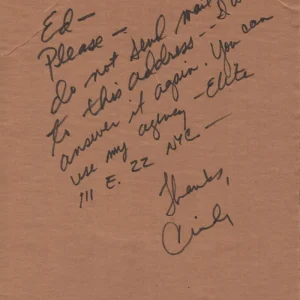 Ed-
Please -
do not send mail
to this address -- I
answer it again. You can
use my agency - Elite
111 E. 22 NYC -
Thanks,
Cindy